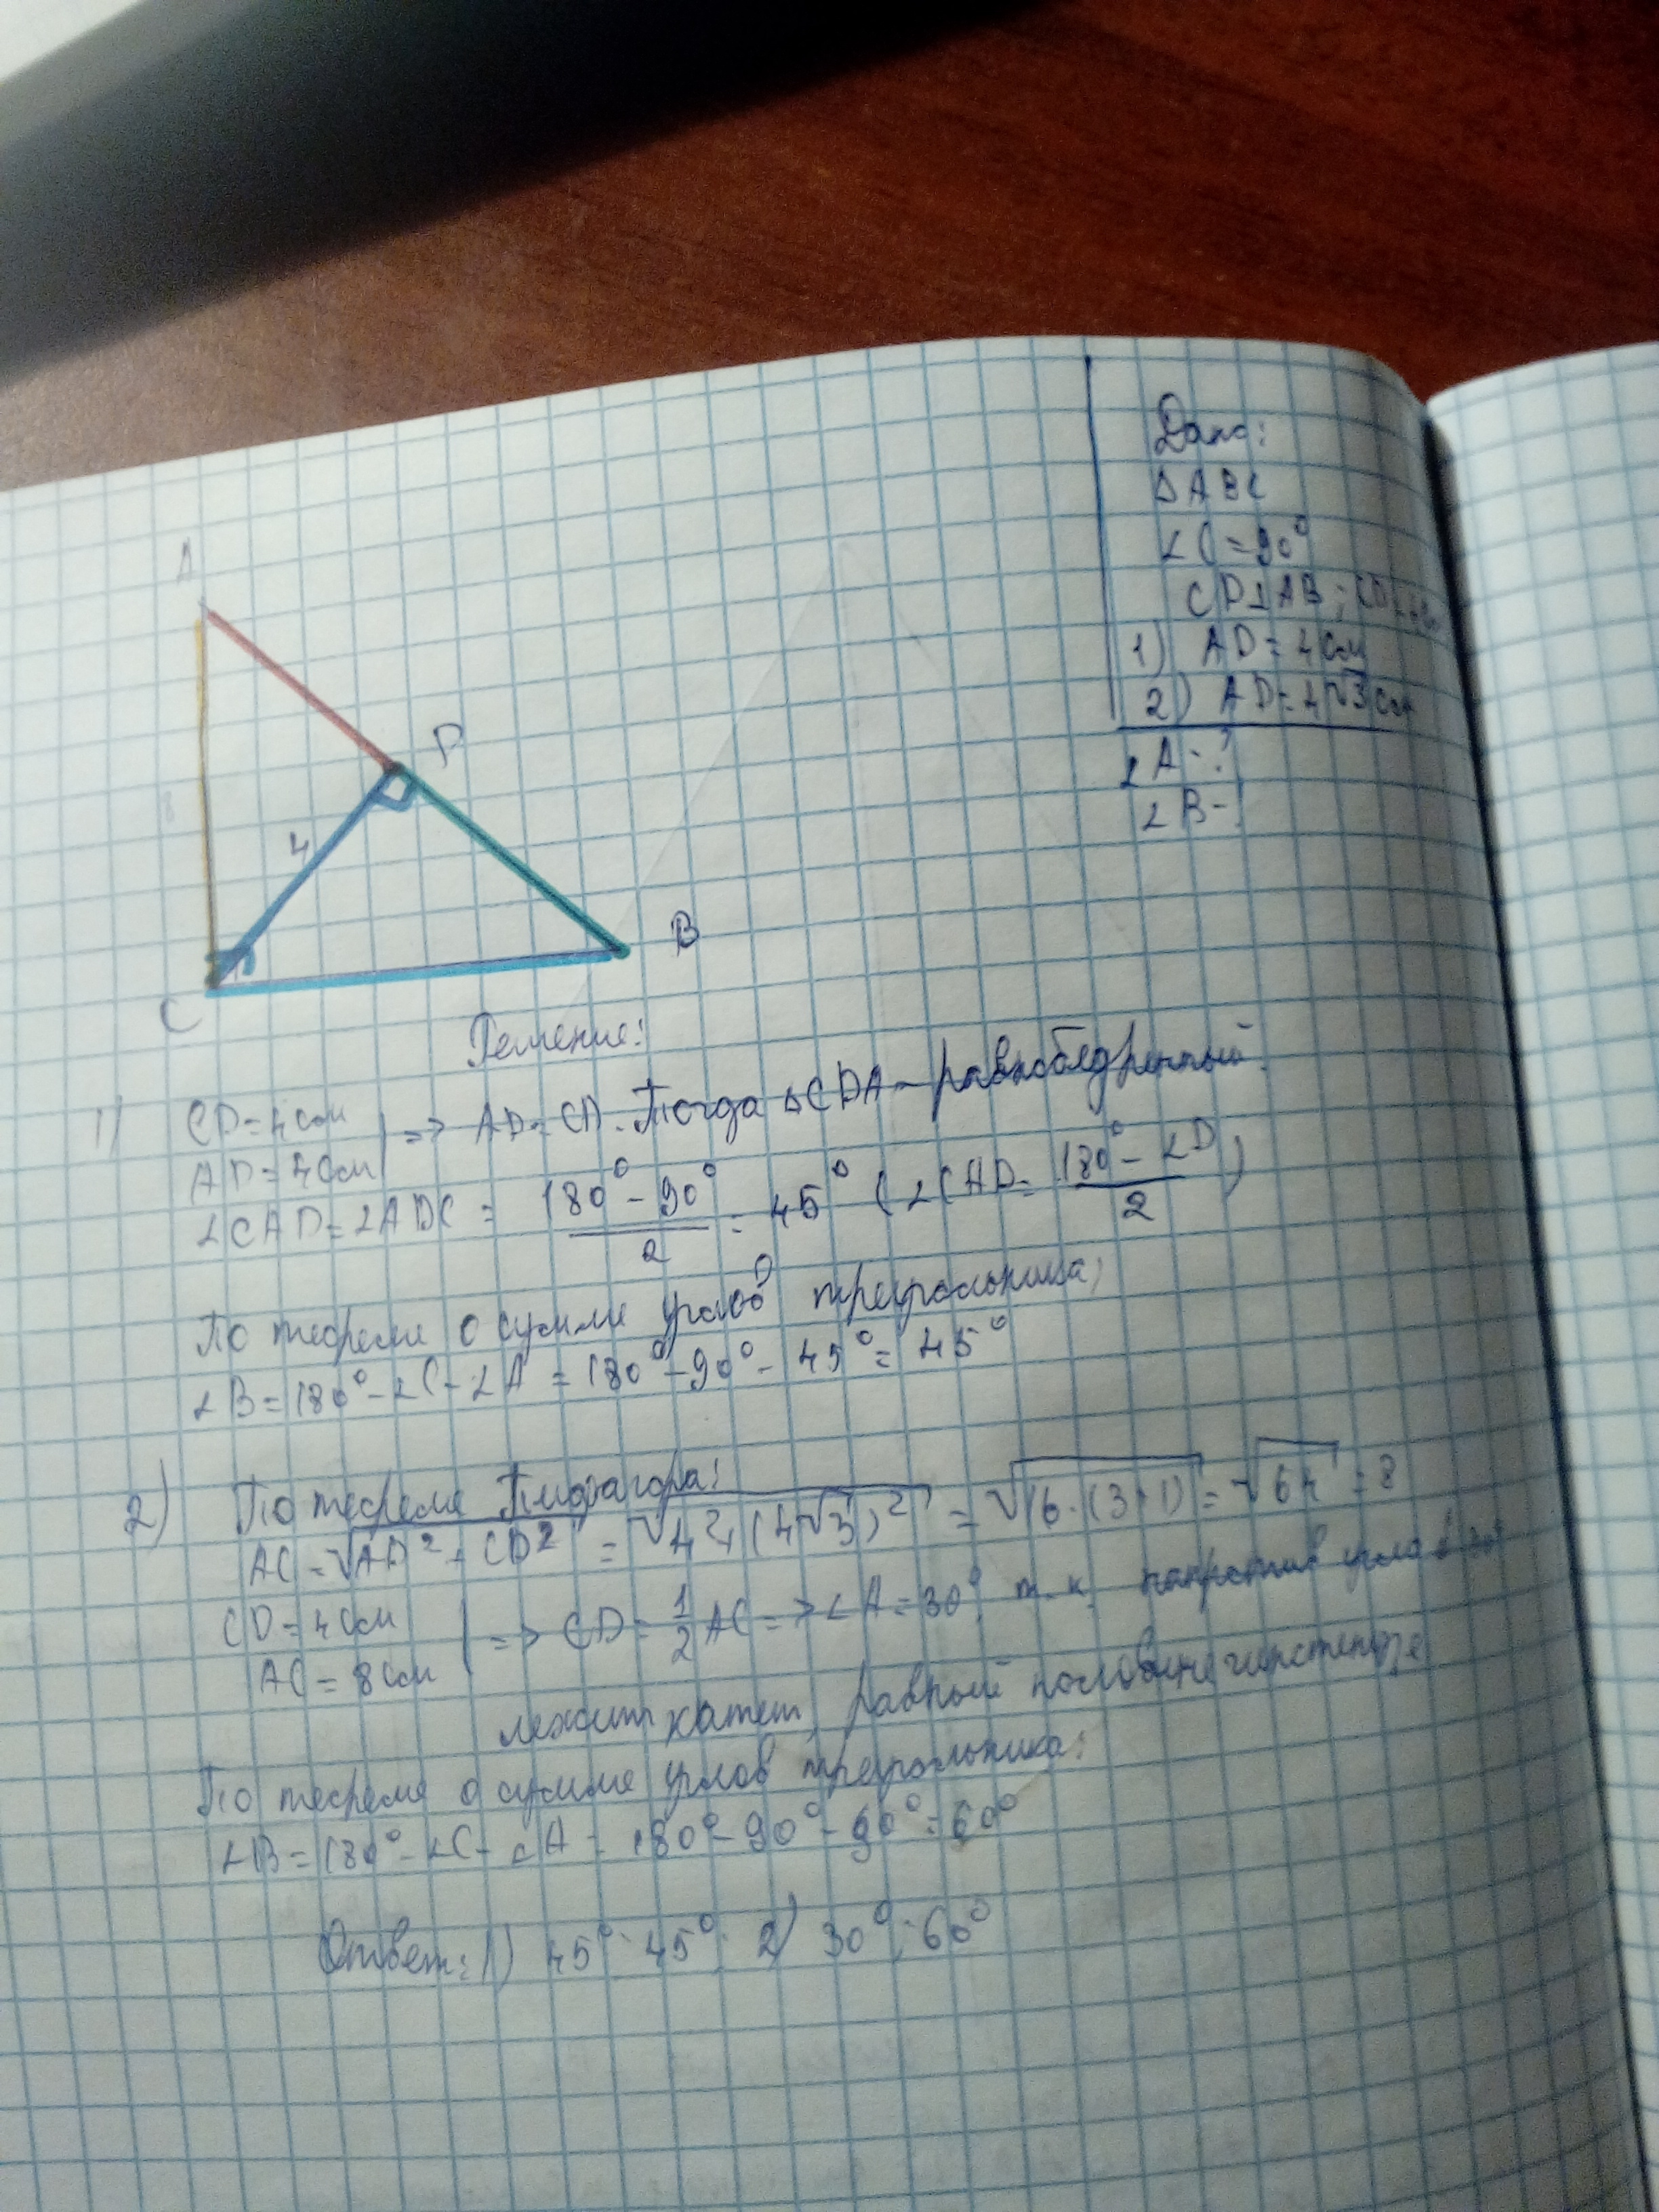 Дано:
Δ ABC
∠C = 90°
CD⊥AB ;
1) AD = 4 см
2) AD = 4√3 см
∠A - ?
∠B - ?
A
D
4
B
C
Решение:
1) CD = 4 см
AD = 4 см | => AD = CD. Тогда Δ CDA – равнобедренный.
∠CAD = ∠ADC = (180° - 90°)/2 = 45° (∠CAD = (180° - ∠D)/2)
По теореме о сумме углов треугольника:
∠B = 180° - ∠C - ∠A = 180° - 90° - 45° = 45°
2) По теореме Пифагора:
AC = √(AD² + CD²) = √(4² + (4√3)²) = √(16·(3+1)) = √64 = 8
CD = 4 см
AC = 8 см | => CD = 1/2 AC => ∠A = 30°, т. к. напротив угла в 30°
лежит катет, равный половине гипотенузе
По теореме о сумме углов треугольника:
∠B = 180° - ∠C - ∠A = 180° - 90° - 60° = 60°
Ответ: 1) 45°; 45°; 2) 30°; 60°